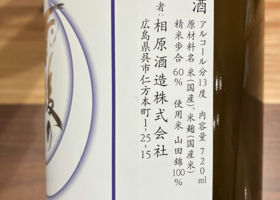 酒
アルコール分13度 内容量720ml
原材料名 米(国産)、米麹(国産米)
精米歩合 60% 使用米 山田錦100%
者:相原酒造株式会社
広島県呉市仁方本町1-25-15